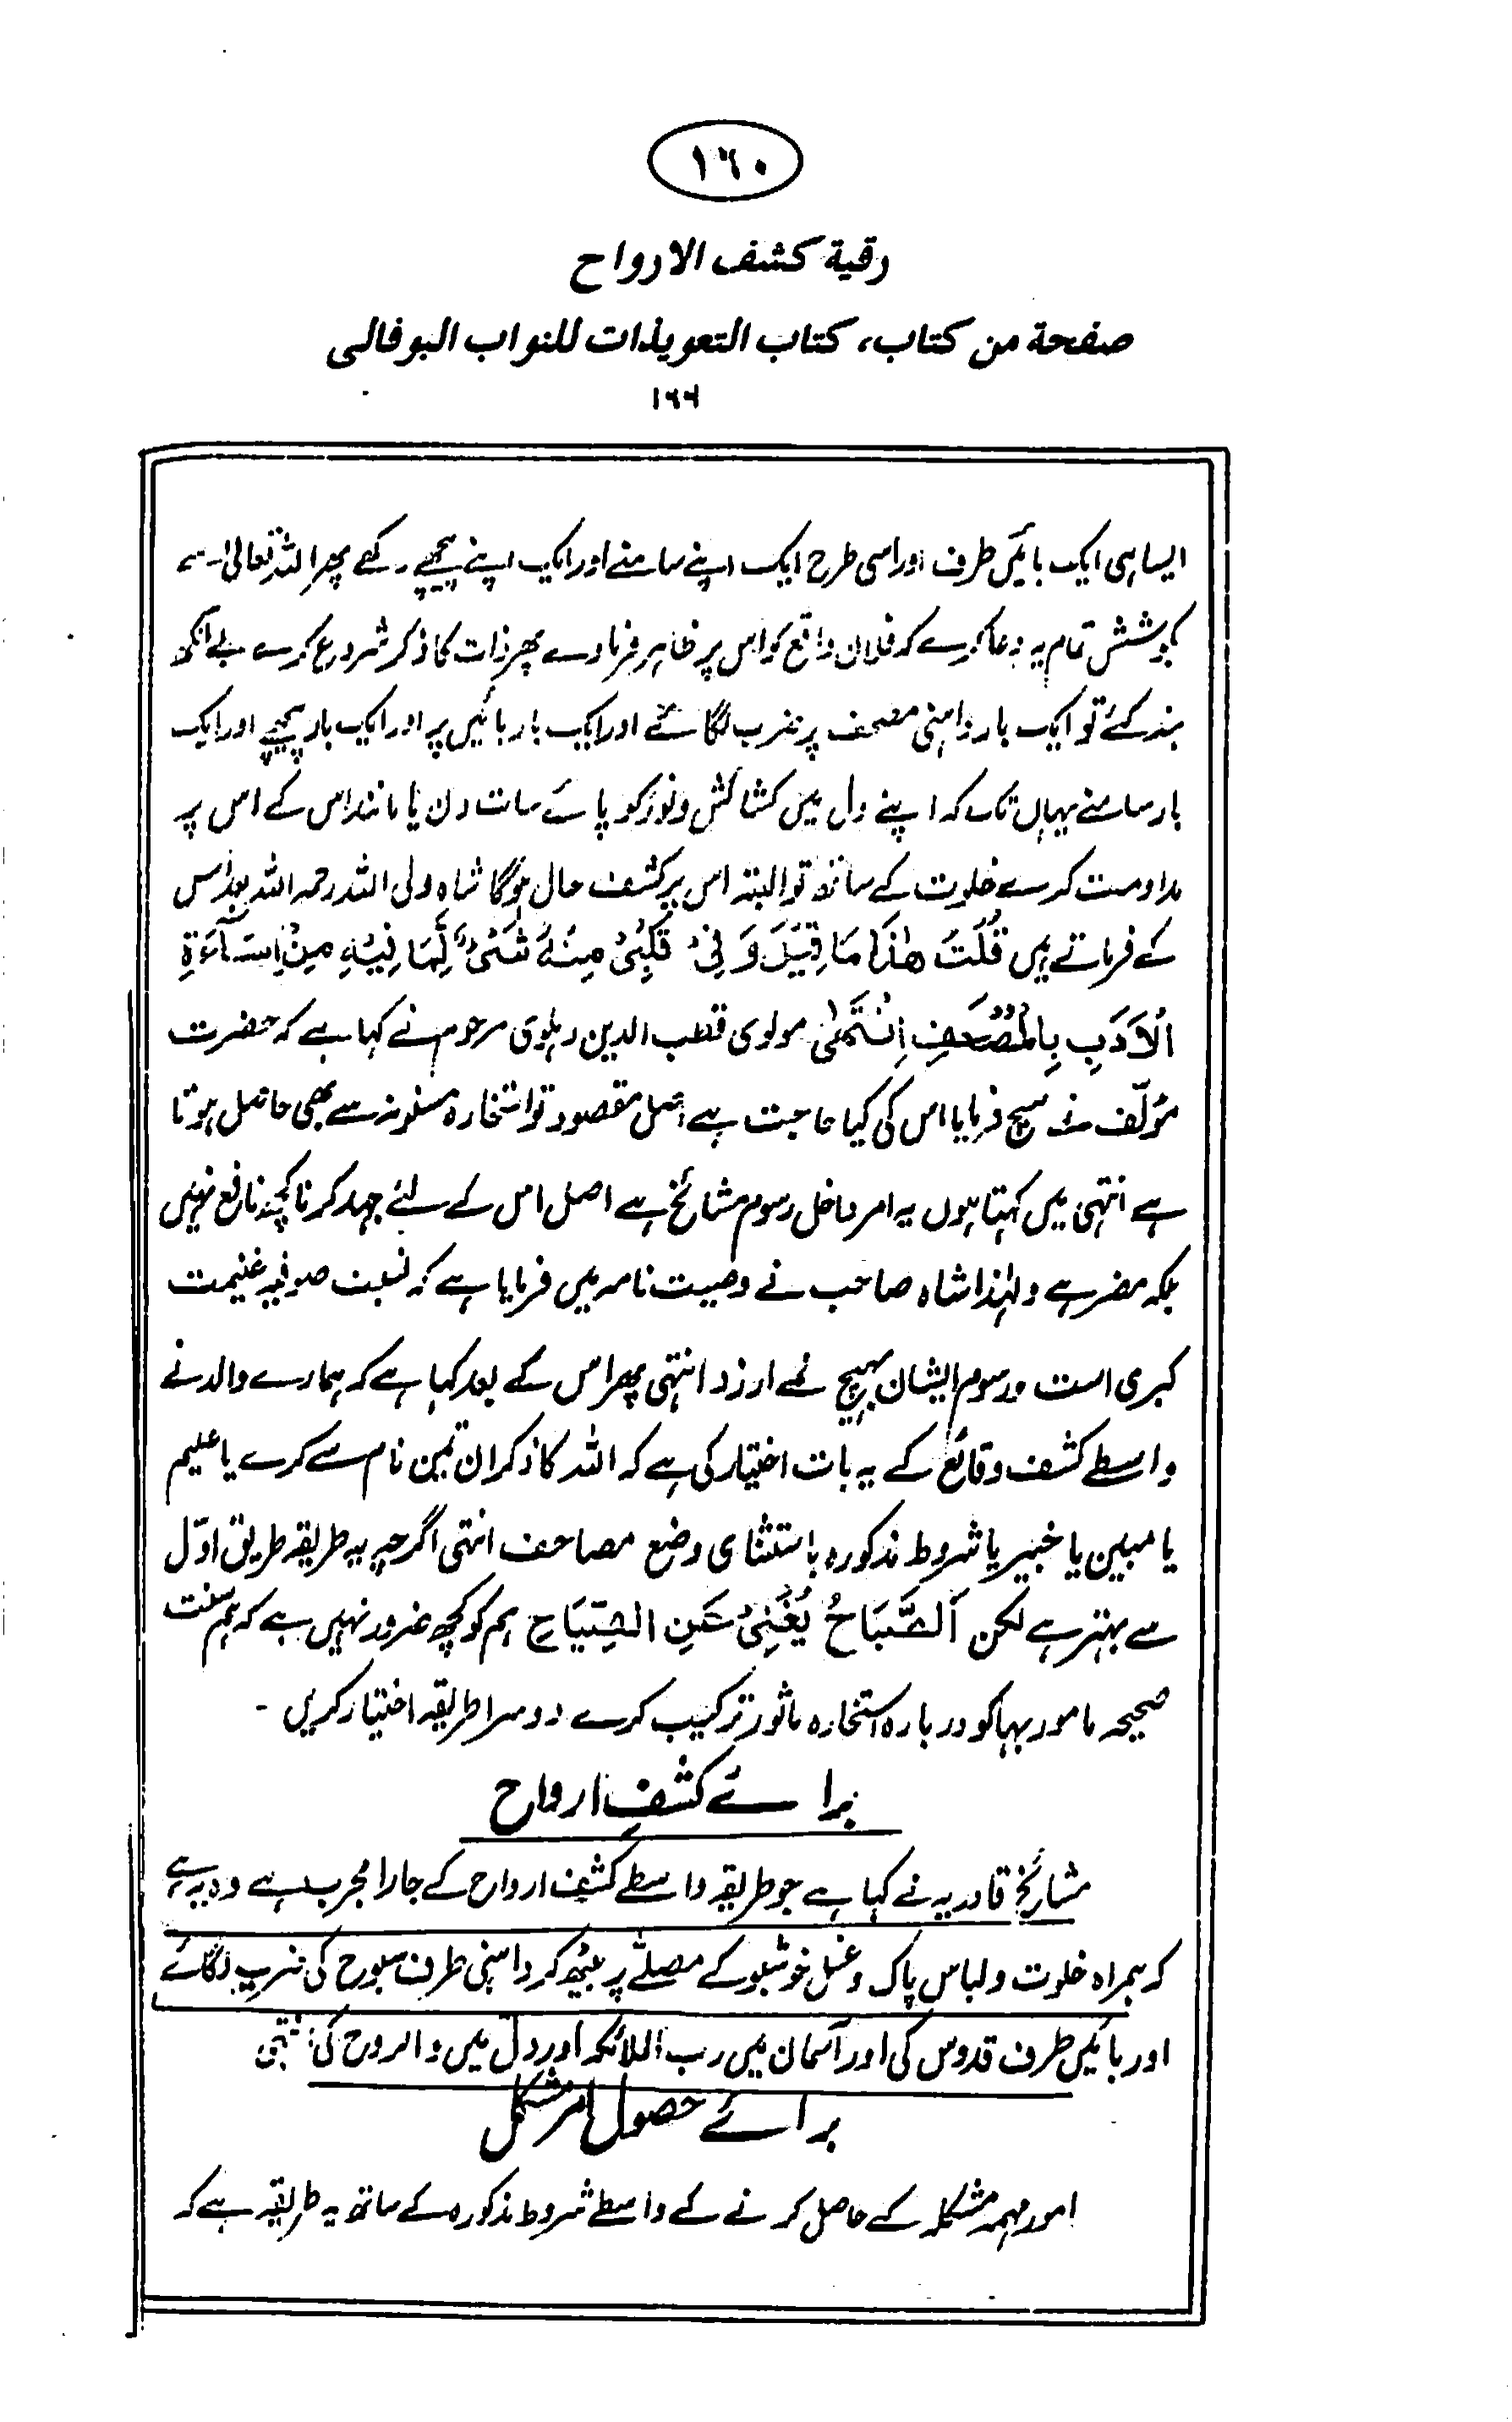 ١٦٠
رقية كشف الارواح
صفحة من كتاب، كتاب التعويذات للنواب البوفالى
١٦٦
ایسا ہی ایک بائیں طرف اور اسی طرح ایک اپنے سامنے اور ایک اپنے پیچھے رکھے پھر اللہ تعالیٰ سے
بکوشش تمام یہ دعا کرے کہ فلان واقع کو اس پر ظاہر فرمادے پھر ذات کا ذکر شروع کرے بے آنکھ
بند کئے تو ایک بار داہنی مصحف پر ضرب لگائے اور ایک بار بائیں پر اور ایک بار پیچھے اور ایک
بار سامنے یہاں تک کہ اپنے دل میں کشائش و نور کو پائے سات دن یا مانند اس کے اس پر
مداومت کرے خلوت کے ساتھ تو البتہ اس پر کشف حال ہوگا شاہ ولی اللہ رحمہ اللہ بعد اس
کے فرماتے ہیں قُلْتُ هٰذَا مَا قِيْلَ وَ فِىْ قَلْبِىْ مِنْهُ شَىْءٌ لِّمَا فِيْهِ مِنْ اِسَآءَةِ
الْاَدَبِ بِالْمُصْحَفِ اِنْتَهٰى مولوی قطب الدین دہلوی مرحوم نے کہا ہے کہ حضرت
مؤلّف نے سچ فرمایا اس کی کیا حاجت ہے اصل مقصود تو استخارہ مسنونہ سے بھی حاصل ہوتا
ہے انتہی میں کہتا ہوں یہ امر داخل رسوم مشائخ ہے اصل اس کے لئے جہد کرنا کچھ نافع نہیں
بلکہ مضر ہے ولہٰذا شاہ صاحب نے وصیت نامہ میں فرمایا ہے کہ نسبت صوفیہ غنیمت
کبری است ورسوم ایشان بہیچ نمے ارزد انتہی پھر اس کے بعد کہا ہے کہ ہمارے والد نے
واسطے کشف وقائع کے یہ بات اختیار کی ہے کہ اللہ کا ذکر ان تین نام سے کرے یا علیم
یا مبین یا خبیر یا شروط مذکورہ باستثنای وضع مصاحف انتہی اگرچہ یہ طریقہ طریق اوّل
سے بہتر ہے لکن اَلصَّبَاحُ يُغْنِىْ عَنِ الْمِصْبَاحِ ہم کو کچھ ضرور نہیں ہے کہ ہم سنت
صحیحہ مامور بہا کو دربارہ استخارہ ماثور ترکیب کرے دوسرا طریقہ اختیار کریں ۔
برائے کشفِ ارواح
مشائخ قادریہ نے کہا ہے جو طریقہ واسطے کشف ارواح کے ہمارا مجرب ہے وہ یہ ہے
کہ ہمراہ خلوت و لباس پاک و غسل خوشبو کے مصلّے پر بیٹھ کر داہنی طرف سبوح کی ضرب لگائے
اور بائیں طرف قدوس کی اور آسمان میں رب الملائکہ اور دل میں والروح کی انتہی
برائے حصول امر مشکل
امور مہمہ مشکلہ کے حاصل کرنے کے واسطے شروط مذکورہ کے ساتھ یہ طریقہ ہے کہ